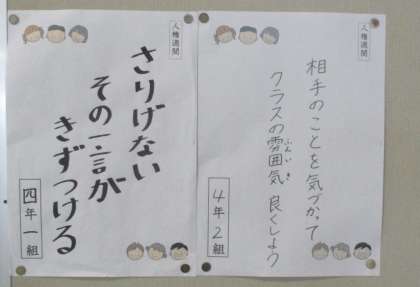 人権週間
相手のことを気づかって
クラスの雰囲気 良くしよう
ふんいき
4年2組
人権週間
さりげない
その一言が
きずつける
四年一組